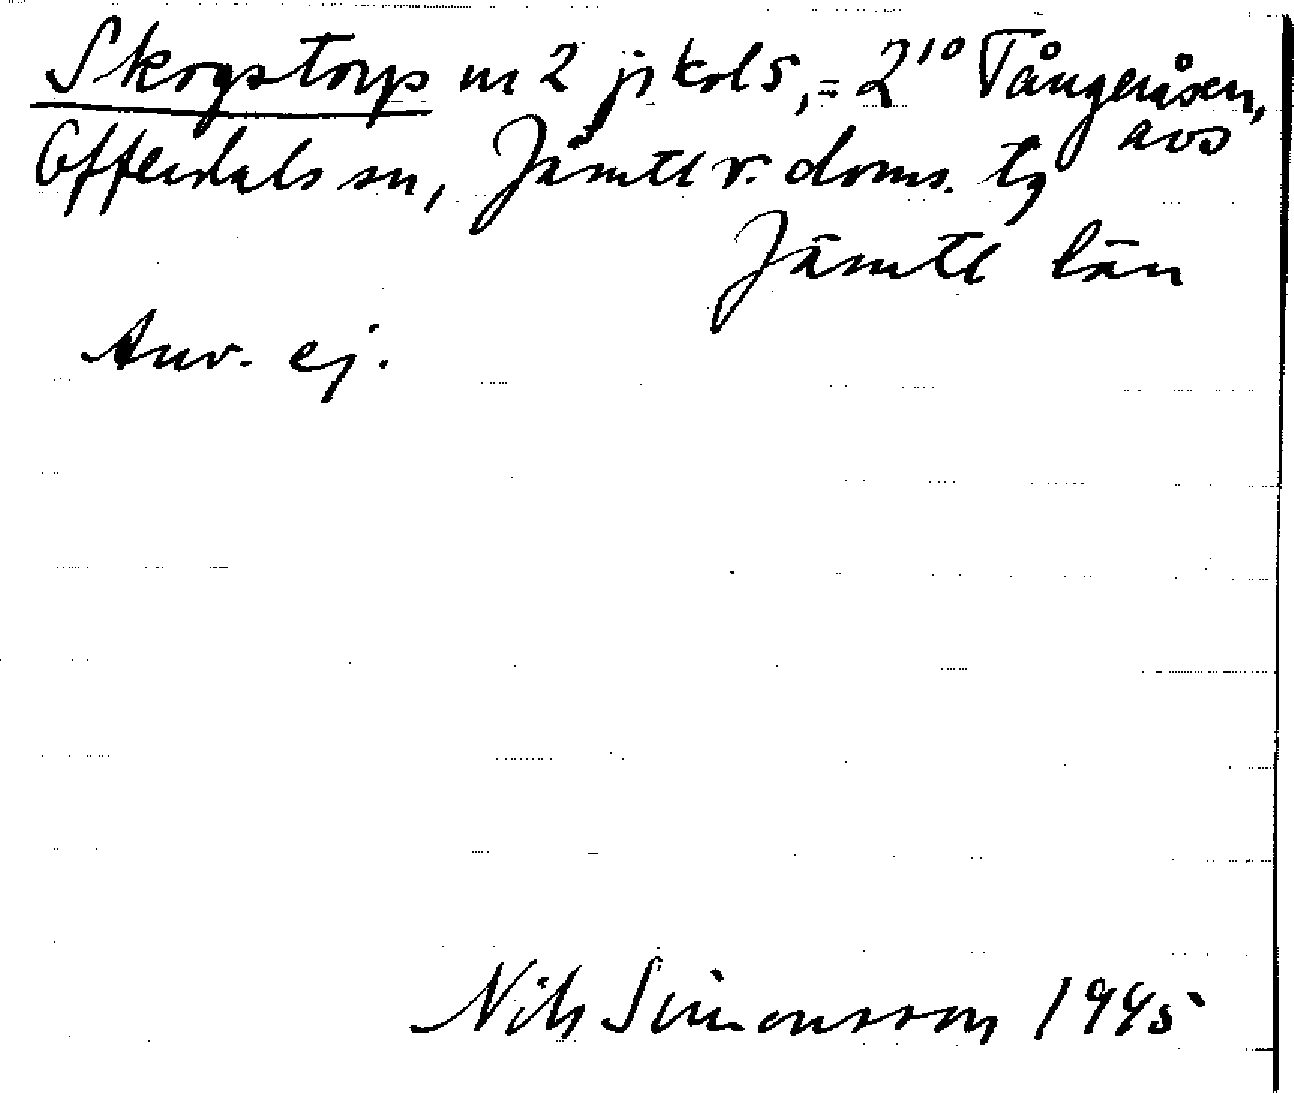 Skogstorp nr 2 jr kol 5, = 2¹⁰ Tångeråsen,
avs
Offerdals sn, Jämtl v. doms. tg
Jämtl län
Anv. ej.
Nils Simonsson 1945